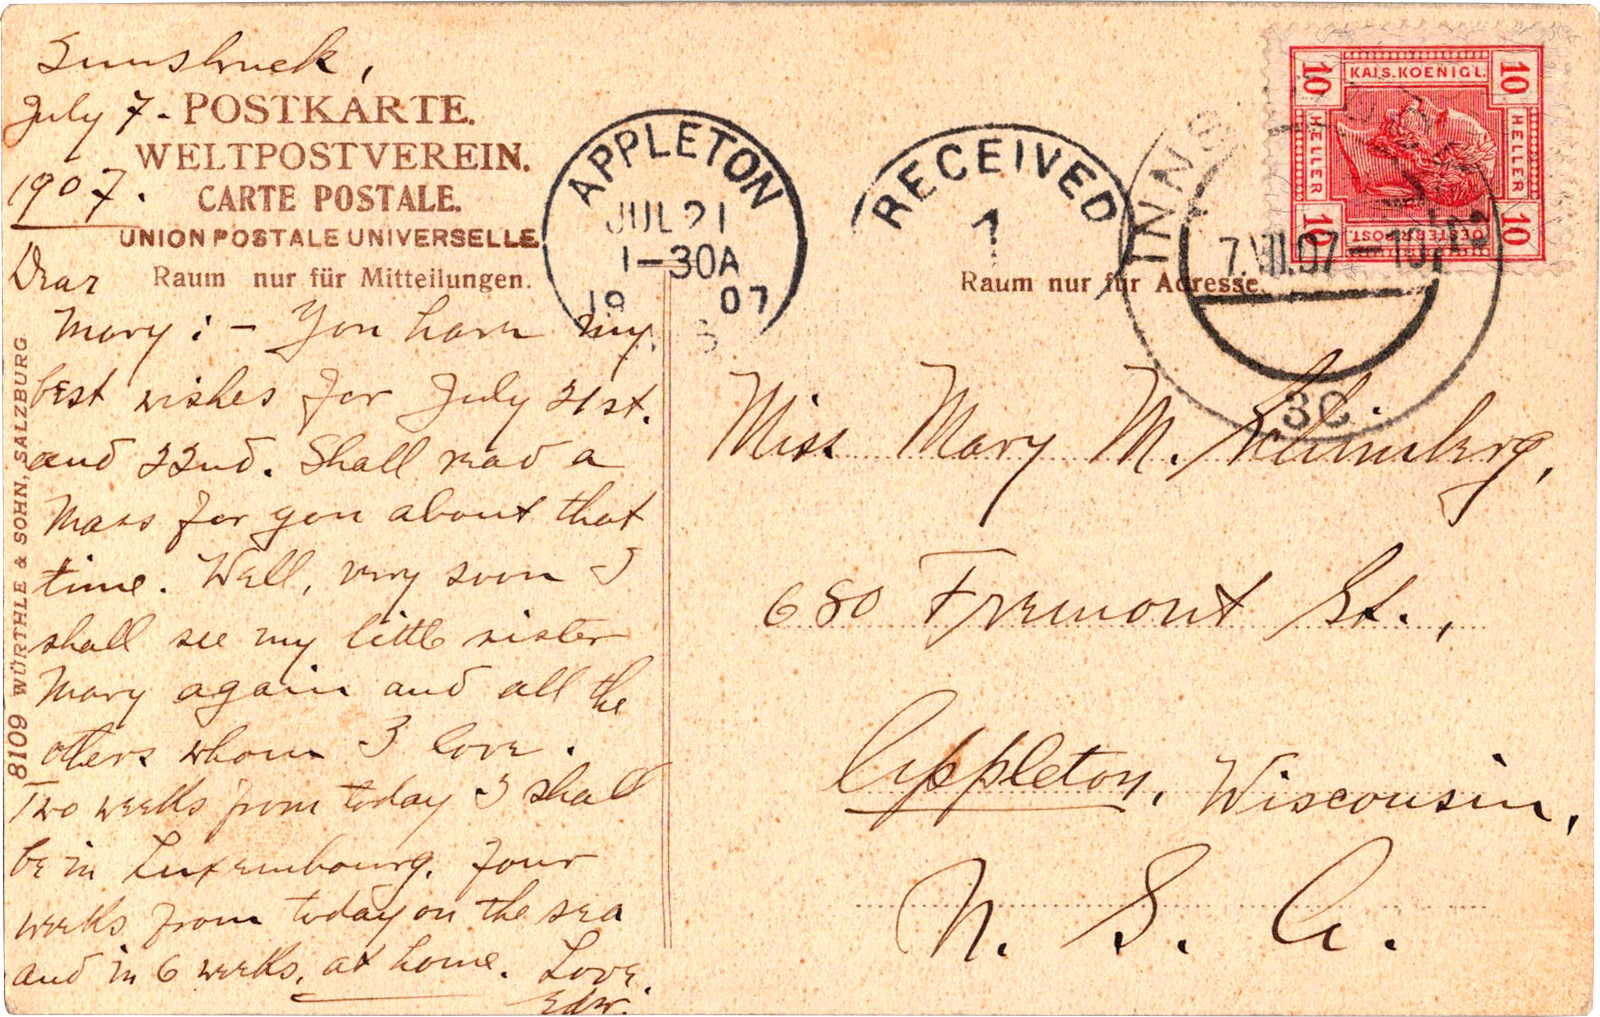 Innsbruck,
July 7 -
1907.
POSTKARTE.
WELTPOSTVEREIN.
CARTE POSTALE.
UNION POSTALE UNIVERSELLE.
Raum nur für Mitteilungen.
Dear
Mary : - You have my
best wishes for July 21st.
and 22nd. Shall read a
Mass for you about that
time. Well, very soon I
shall see my little sister
Mary again and all the
others whom I love.
Two weeks from today I shall
be in Luxembourg. Four
weeks from today on the sea
and in 6 weeks, at home. Love.
Edw.
8109 WÜRTHLE & SOHN, SALZBURG
APPLETON
JUL 21
1-30A
19 07
RECEIVED
1
Raum nur für Adresse.
INNS
7.VII.07-10
3C
KAIS. KOENIGL.
10 10
HELLER HELLER
10 10
OESTERR. POST.
Miss Mary M.
680 Fremont St.,
Appleton, Wisconsin,
U. S. A.